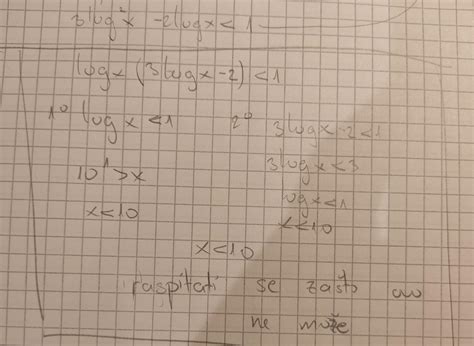 3log²x - 2logx < 1
logx (3logx - 2) < 1
1° logx < 1 2° 3logx - 2 < 1
10¹ > x 3logx < 3
x < 10 logx < 1
x < 10
x < 10
raspitati se zašto ovo
ne može